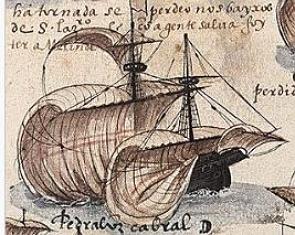 ha tornada se perdeo nos bayxos
de S. lazro e toda gente salva foy
ter a Melinde
perdi
Pedralvz cabral D